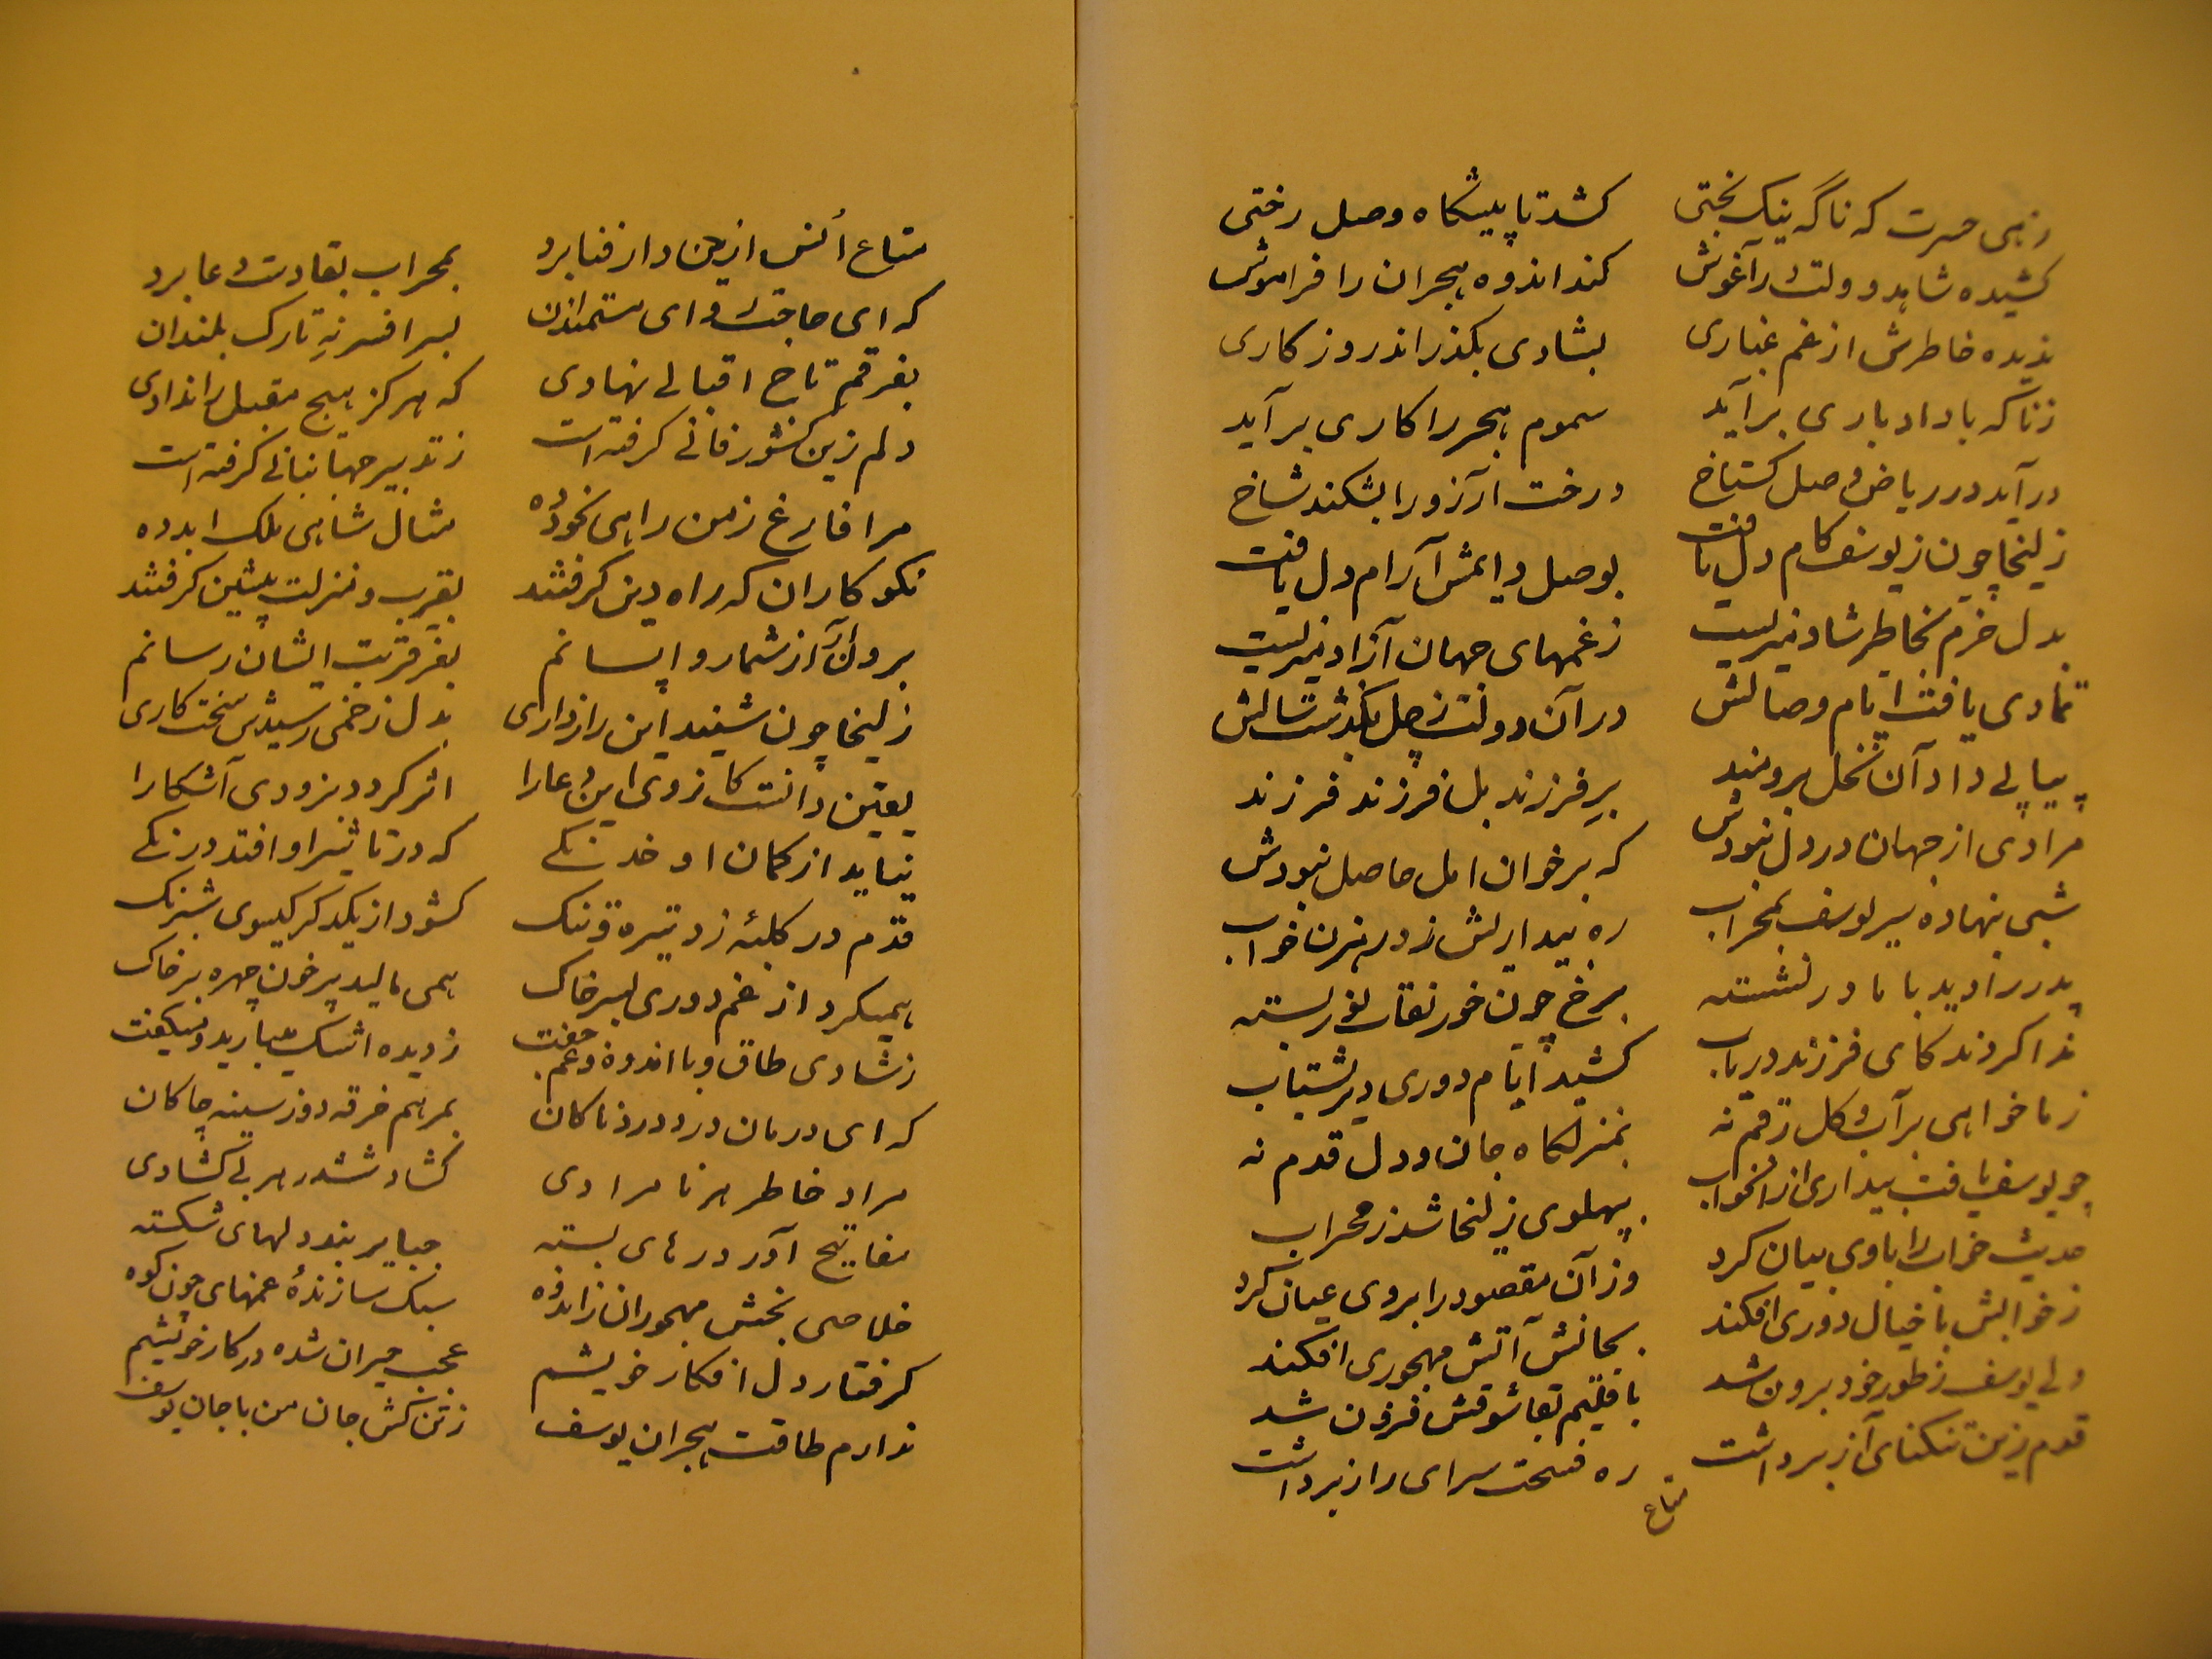 زهی حسرت که ناگه نیک بختی کشد تا پیشگاه وصل رختی
کشیده شاهد دولت در آغوش کند اندوه هجران را فراموش
ندیده خاطرش از غم غباری بشادی بگذراند روزکاری
زناکه باد ادباری برآید سموم هجر را کاری برآید
درآید در ریاض وصل کستاخ درخت آرزو را بشکند شاخ
زلیخا چون ز یوسف کام دل یافت بوصل دایمش آرام دل یافت
بدل خرم بخاطر شاد میزیست ز غمهای جهان آزاد میزیست
تمادی یافت ایام وصالش در آن دولت ز چل بگذشت سالش
پیاپی داد آن نخل برومند بر فرزند بل فرزند فرزند
مرادی از جهان در دل نبودش که بر خوان امل حاصل نبودش
شبی بنهاده سر یوسف بمحراب ره بیداریش زد رهزن خواب
پدر را دید با مادر نشسته برخ چون خور نقاب نور بسته
ندا کردند کای فرزند دریاب کشید ایام دوری دیر بشتاب
ز ما خواهی بر آب و کل رقم نه بمنزلکاه جان و دل قدم نه
چو یوسف یافت بیداری از آنخواب بپهلوی زلیخا شد ز محراب
حدیث خواب را با وی بیان کرد وز آن مقصود را بر وی عیان کرد
ز خوابش با خیال دوری افکند بجانش آتش مهجوری افکند
ولی یوسف ز طور خود برون شد باقلیم بقا شوقش فزون شد
قدم زین تنکنای آز برداشت ره فسحت سرای راز برداشت
متاع
متاع اُنس ازین دار فنا برد بمحراب بقا دست دعا برد
که ای حاجت روای مستمندان بسر افسر نهِ تارک بلندان
بفرقم تاج اقبالی نهادی که هرکز هیچ مقبل را ندادی
دلم زین کشور فانی کرفته است ز تدبیر جهانبانی کرفته است
مرا فارغ ز من راهی بخود ده مثال شاهی ملک ابد ده
نکوکاران که راه دین کرفتند بقرب و منزلت پیشین کرفتند
برون آر از شمار واپسانم بفر قربت ایشان رسانم
زلیخا چون شنید این رازداری بدل زخمی رسیدش سخت کاری
یقین دانست کز وی این دعا را اثر کردد بزودی آشکارا
نیاید از کمان او خدنکی که در تاثیر او افتد درنکی
قدم در کلبه زد تیره و تنک کشود از یکدکر کیسوی شبرنک
همیکرد از غم دوری بسر خاک همی مالید پر خون چهره بر خاک
ز شادی طاق و با اندوه و غم جفت ز دیده اشک میبارید و میکفت
که ای درمان درد دردناکان بمرهم خرقه دوز سینه چاکان
مراد خاطر هر نامرادی کشاد ششدر هر بی کشادی
مفاتیح آور درهای بسته جبایر بند دلهای شکسته
خلاصی بخش مهجوران ز اندوه سبک سازندهٔ غمهای چون کوه
کرفتار دل افکار خویشم عجب حیران شده در کار خویشم
ندارم طاقت هجران یوسف ز تن کش جان من با جان یوسف